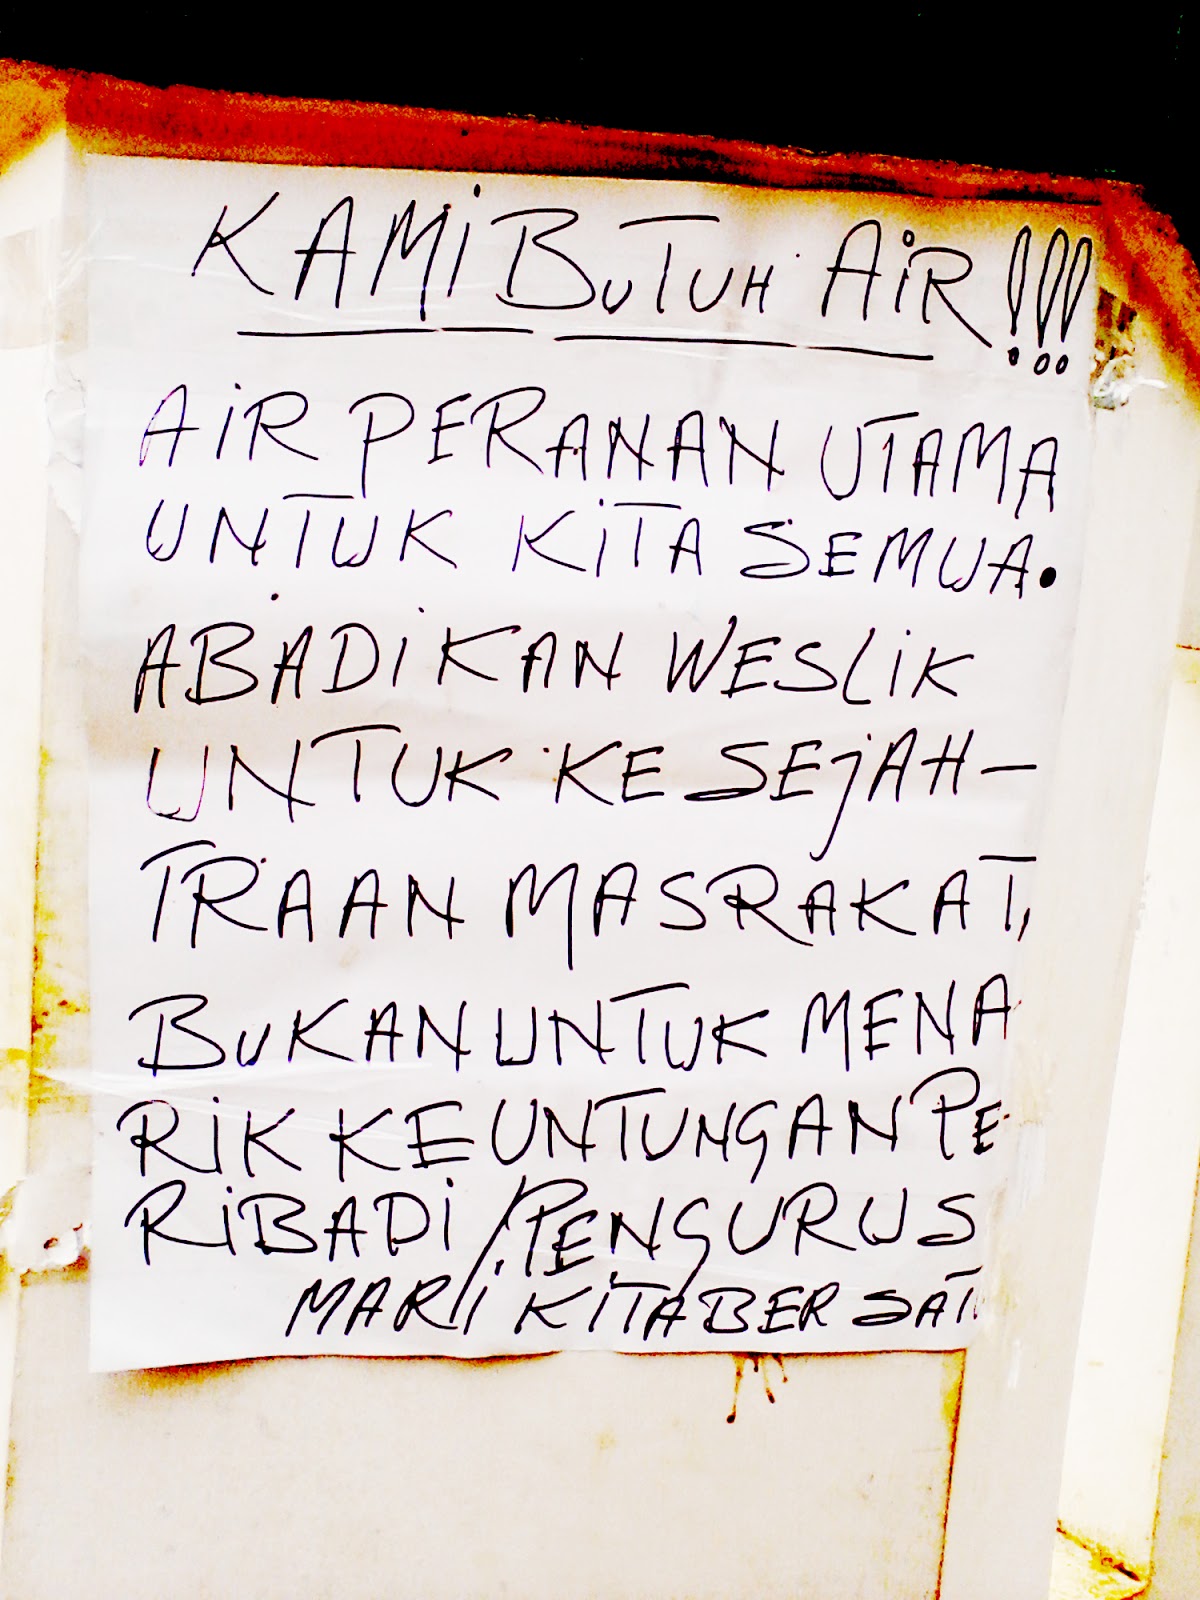 KAMI BUTUH AIR !!!
AIR PERANAN UTAMA
UNTUK KITA SEMUA.
ABADIKAN WESLIK
UNTUK KESEJAH-
TRAAN MASRAKAT,
BUKAN UNTUK MENA
RIK KEUNTUNGAN PE
RIBADI/PENGURUS
MARI KITA BERSAT